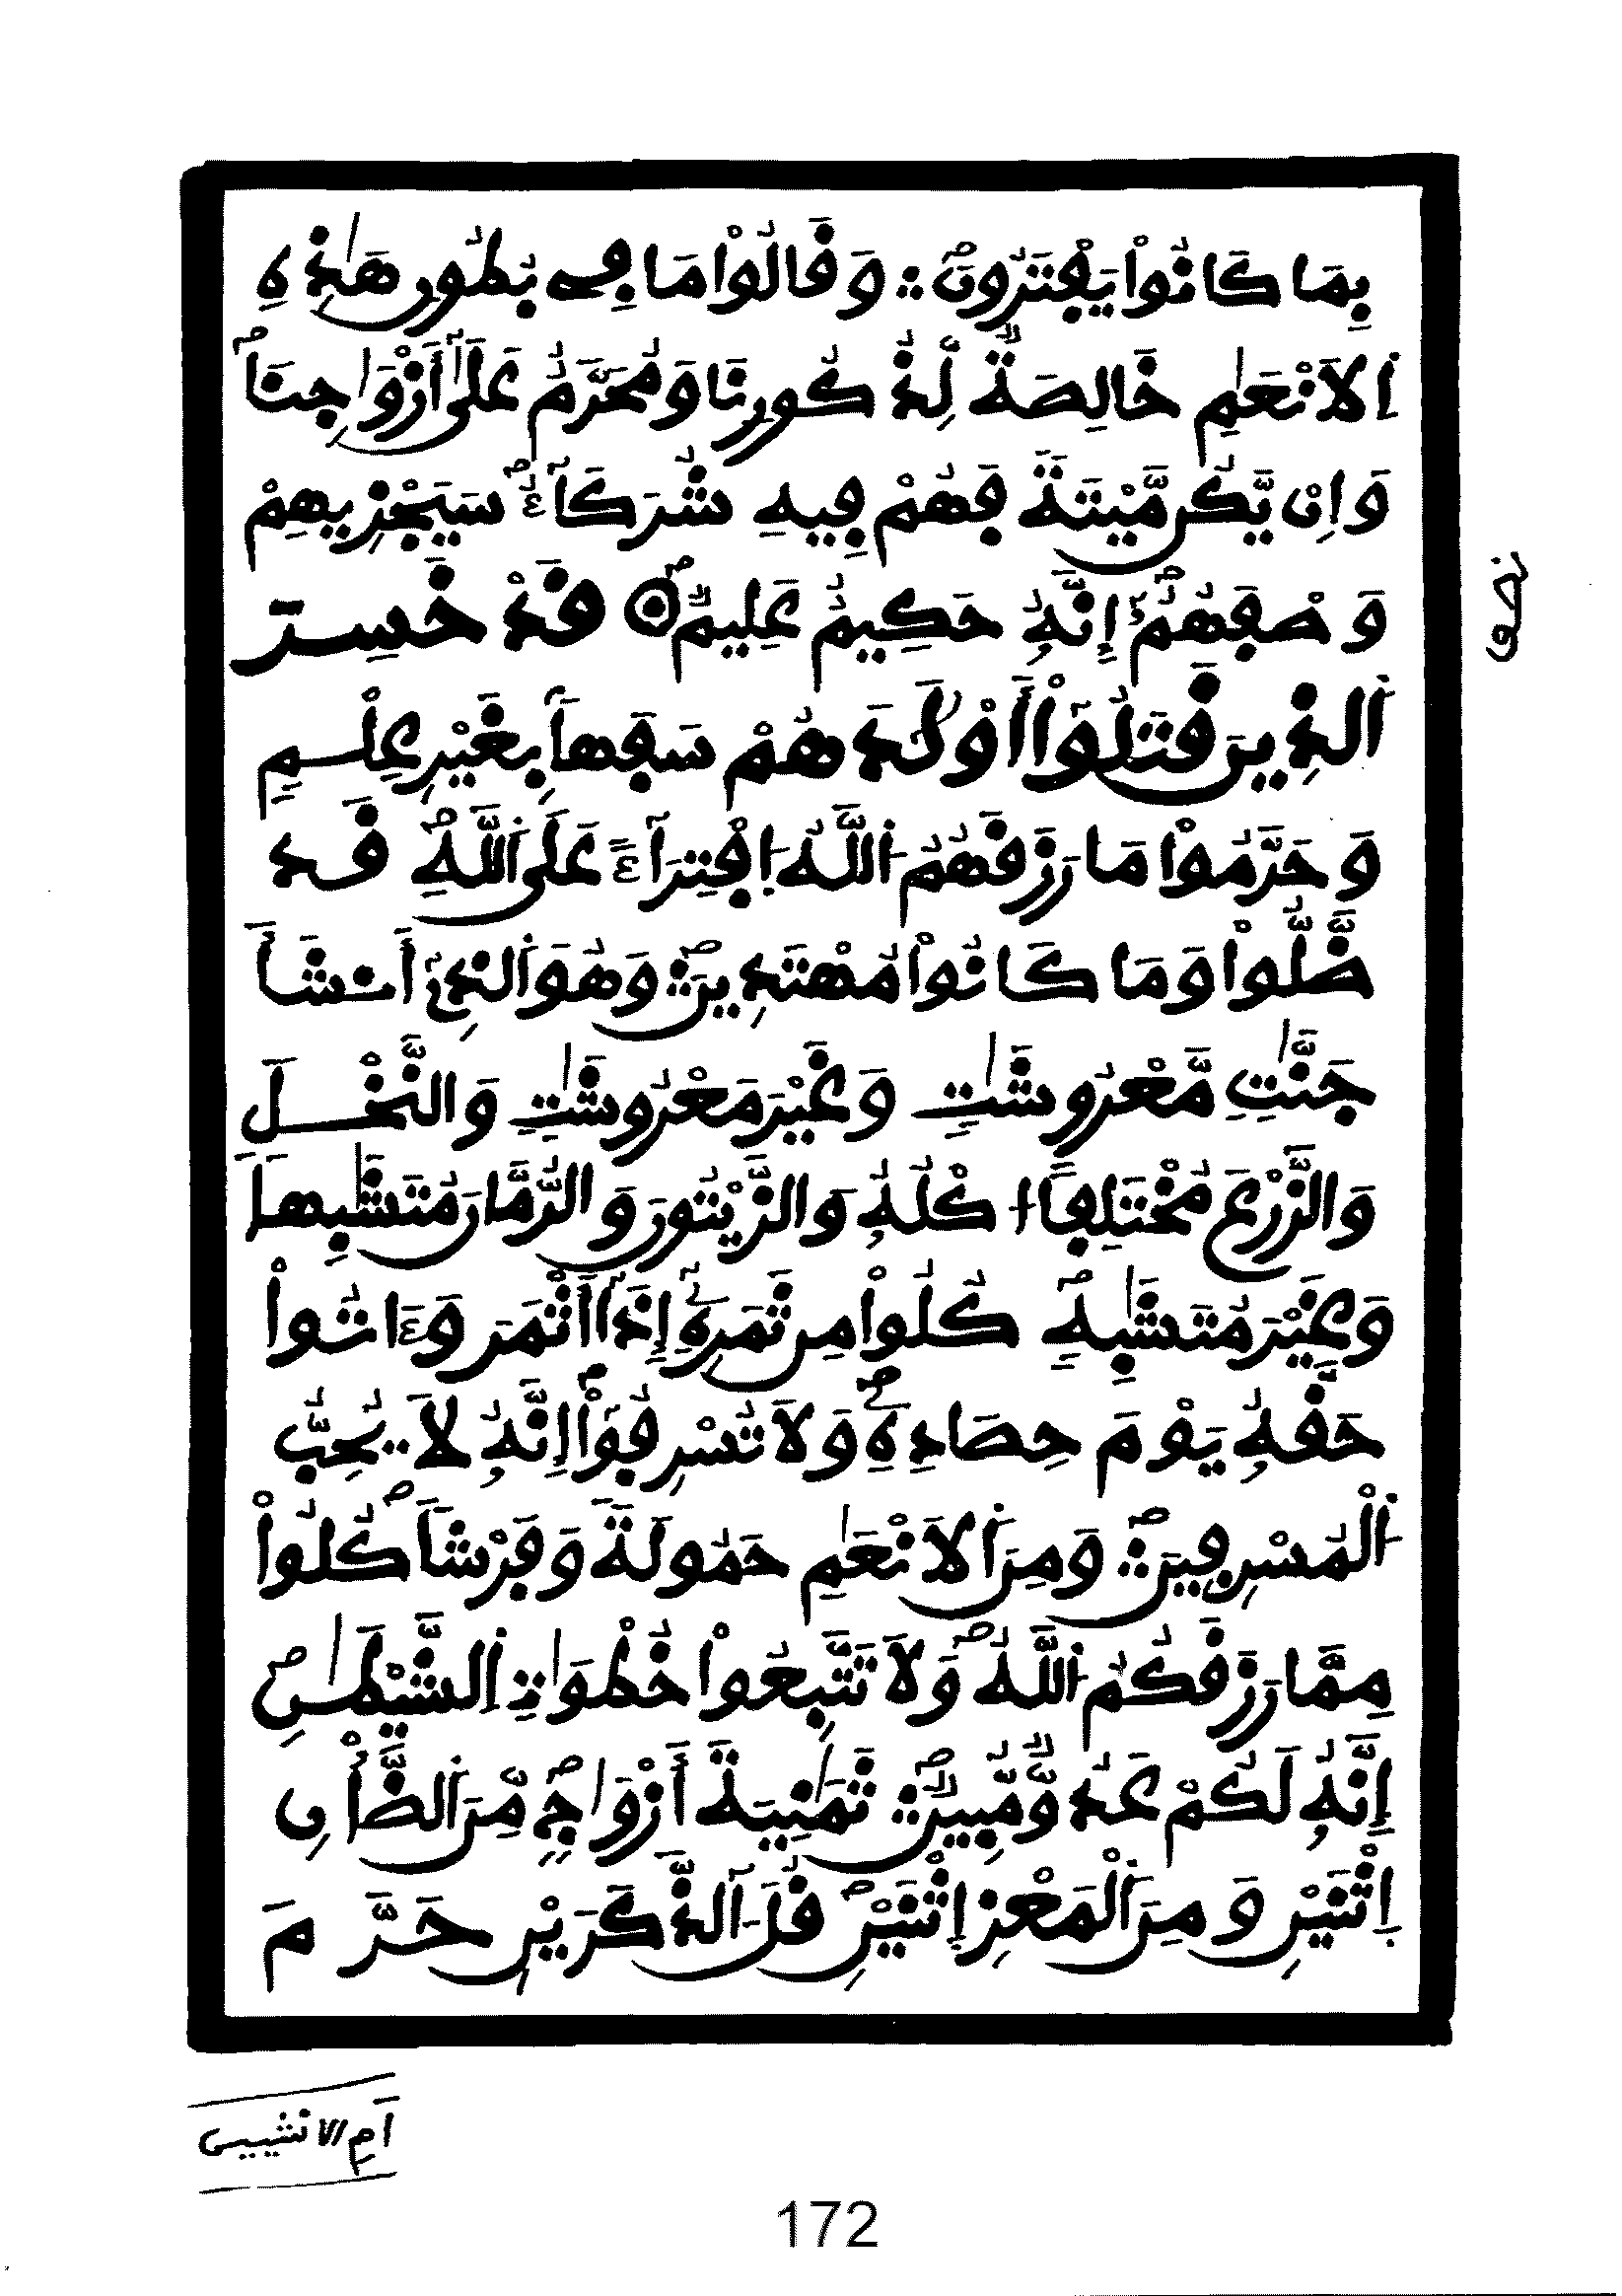 بِمَا كَانُواْ يَفْتَرُونَ وَقَالُواْ مَا فِے بُطُونِ هَٰذِهِ
اِ۬لَانْعَٰمِ خَالِصَةٌ لِّذُكُورِنَا وَمُحَرَّمٌ عَلَىٰٓ أَزْوَٰجِنَا
وَإِنْ يَّكُن مَّيْتَةً فَهُمْ فِيهِ شُرَكَآءُ سَيَجْزِيهِمْ
وَصْفَهُمُۥٓ إِنَّهُۥ حَكِيمٌ عَلِيمٌ قَدْ خَسِرَ
اَ۬لذِينَ قَتَلُوٓاْ أَوْلَٰدَهُمْ سَفَهاَۢ بِغَيْرِ عِلْمٍ
وَحَرَّمُواْ مَا رَزَقَهُمُ اُ۬للَّهُ اُ۪فْتِرَآءً عَلَى اَ۬للَّهِ قَد
ضَّلُّواْ وَمَا كَانُواْ مُهْتَدِينَ وَهُوَ اَ۬لذِےٓ أَنشَأَ
جَنَّٰتٍ مَّعْرُوشَٰتٍ وَغَيْرَ مَعْرُوشَٰتٍ وَالنَّخْلَ
وَالزَّرْعَ مُخْتَلِفاً ا۟كْلُهُۥ وَالزَّيْتُونَ وَالرُّمَّانَ مُتَشَٰبِهاً
وَغَيْرَ مُتَشَٰبِهٍ كُلُواْ مِن ثَمَرِهِۦٓ إِذَآ أَثْمَرَ وَءَاتُواْ
حَقَّهُۥ يَوْمَ حِصَادِهِۦ وَلَا تُسْرِفُوٓاْ إِنَّهُۥ لَا يُحِبُّ
اُ۬لْمُسْرِفِينَ وَمِنَ اَ۬لَانْعَٰمِ حَمُولَةً وَفَرْشاً كُلُواْ
مِمَّا رَزَقَكُمُ اُ۬للَّهُ وَلَا تَتَّبِعُواْ خُطْوَٰتِ اِ۬لشَّيْطَٰنِ
إِنَّهُۥ لَكُمْ عَدُوٌّ مُّبِينٌ ثَمَٰنِيَةَ أَزْوَٰجٍ مِّنَ اَ۬لضَّأْنِ
اِ۪ثْنَيْنِ وَمِنَ اَ۬لْمَعْزِ إِثْنَيْنِ قُلَ آلذَّكَرَيْنِ حَرَّمَ
نصف
أم الانثيين
172